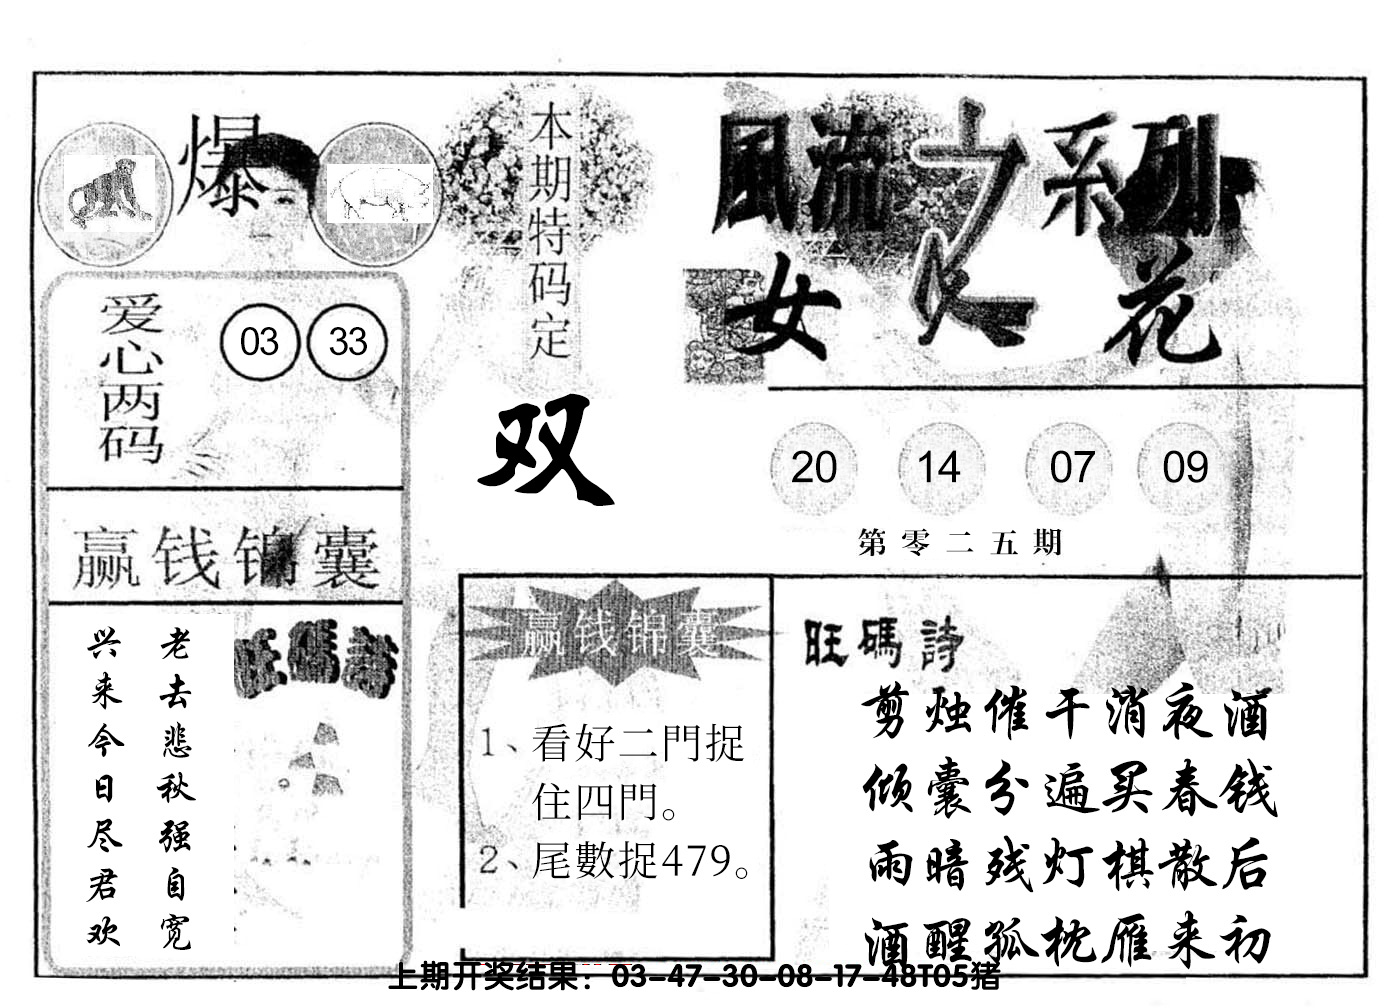 爆
本期特码定
双
風流之系列
女人花
爱心两码
03 33
20 14 07 09
第零二五期
赢钱锦囊
老去悲秋强自宽
兴来今日尽君欢
旺碼詩
赢钱锦囊
1、看好二門捉
住四門。
2、尾數捉479。
旺碼詩
剪烛催干消夜酒
倾囊分遍买春钱
雨暗残灯棋散后
酒醒孤枕雁来初
上期开奖结果：03-47-30-08-17-48T05猪